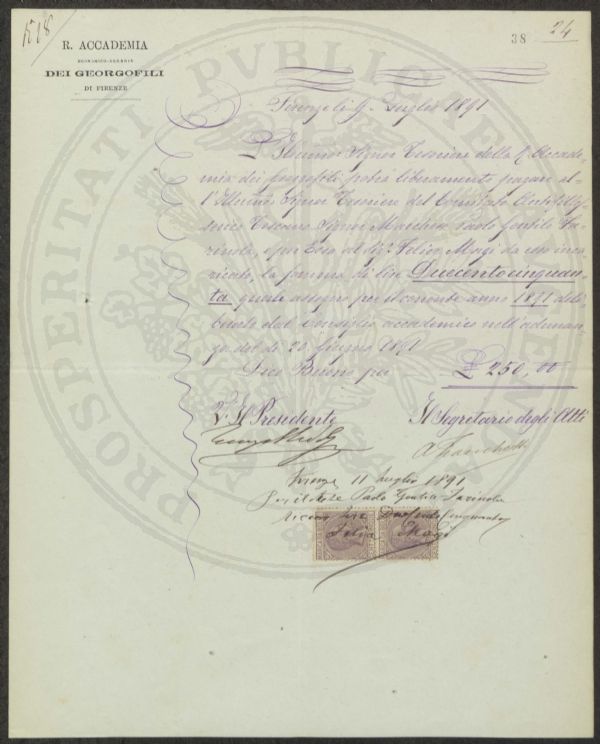 1518
38
24
R. ACCADEMIA
ECONOMICO-AGRARIA
DEI GEORGOFILI
DI FIRENZE
PROSPERITATI PVBLICAE AVGENDAE
Firenze li 9. Luglio 1891
L'Illmo Signor Tesoriere della R. Accade-
mia dei Georgofili potrà liberamente pagare al-
l'Illmo Signor Tesoriere del Comitato Antifillos-
serico Toscano Signor Marchese Paolo Gentile Fa-
rinola, e per Esso al Sigr Felice Magi da esso inca-
ricato, la somma di lire Duecentocinquan-
ta quale assegno per il corrente anno 1891 deli-
berato dal Consiglio accademico nell'adunan-
za del dì 23 Giugno 1891
Dico Buono per £ 250,00
V. Il Presidente
Il Segretario degli Atti
A. Franchetti
Firenze 11 Luglio 1891
Paolo Gentile Farinola
Lire Duecentocinquanta
Felice Magi